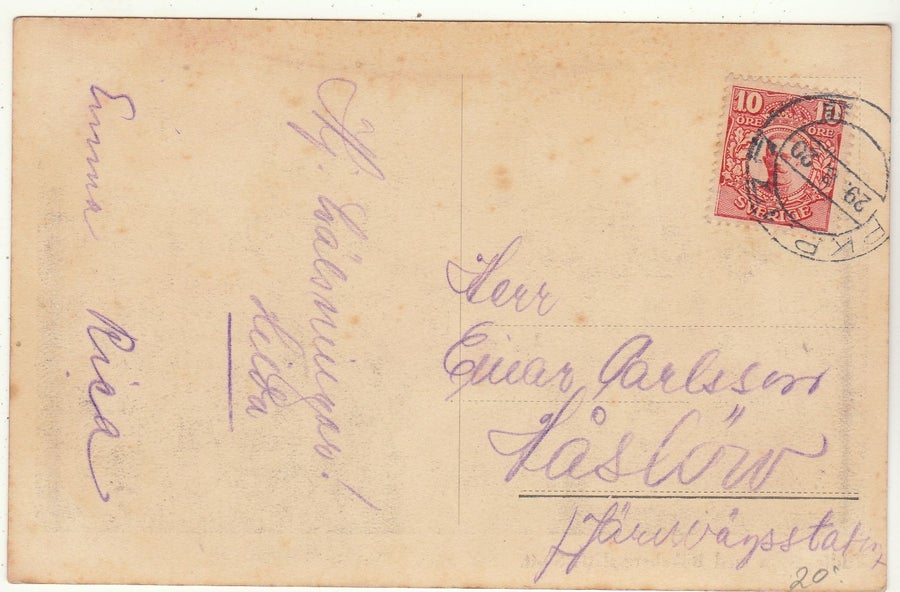 Emma Risa
Hj. hälsningar!
Hilda
10 10
ÖRE ÖRE
SVERIGE
PKP
29.
Herr
Einar Carlsson
Håslöv
Järnvägsstat
20: